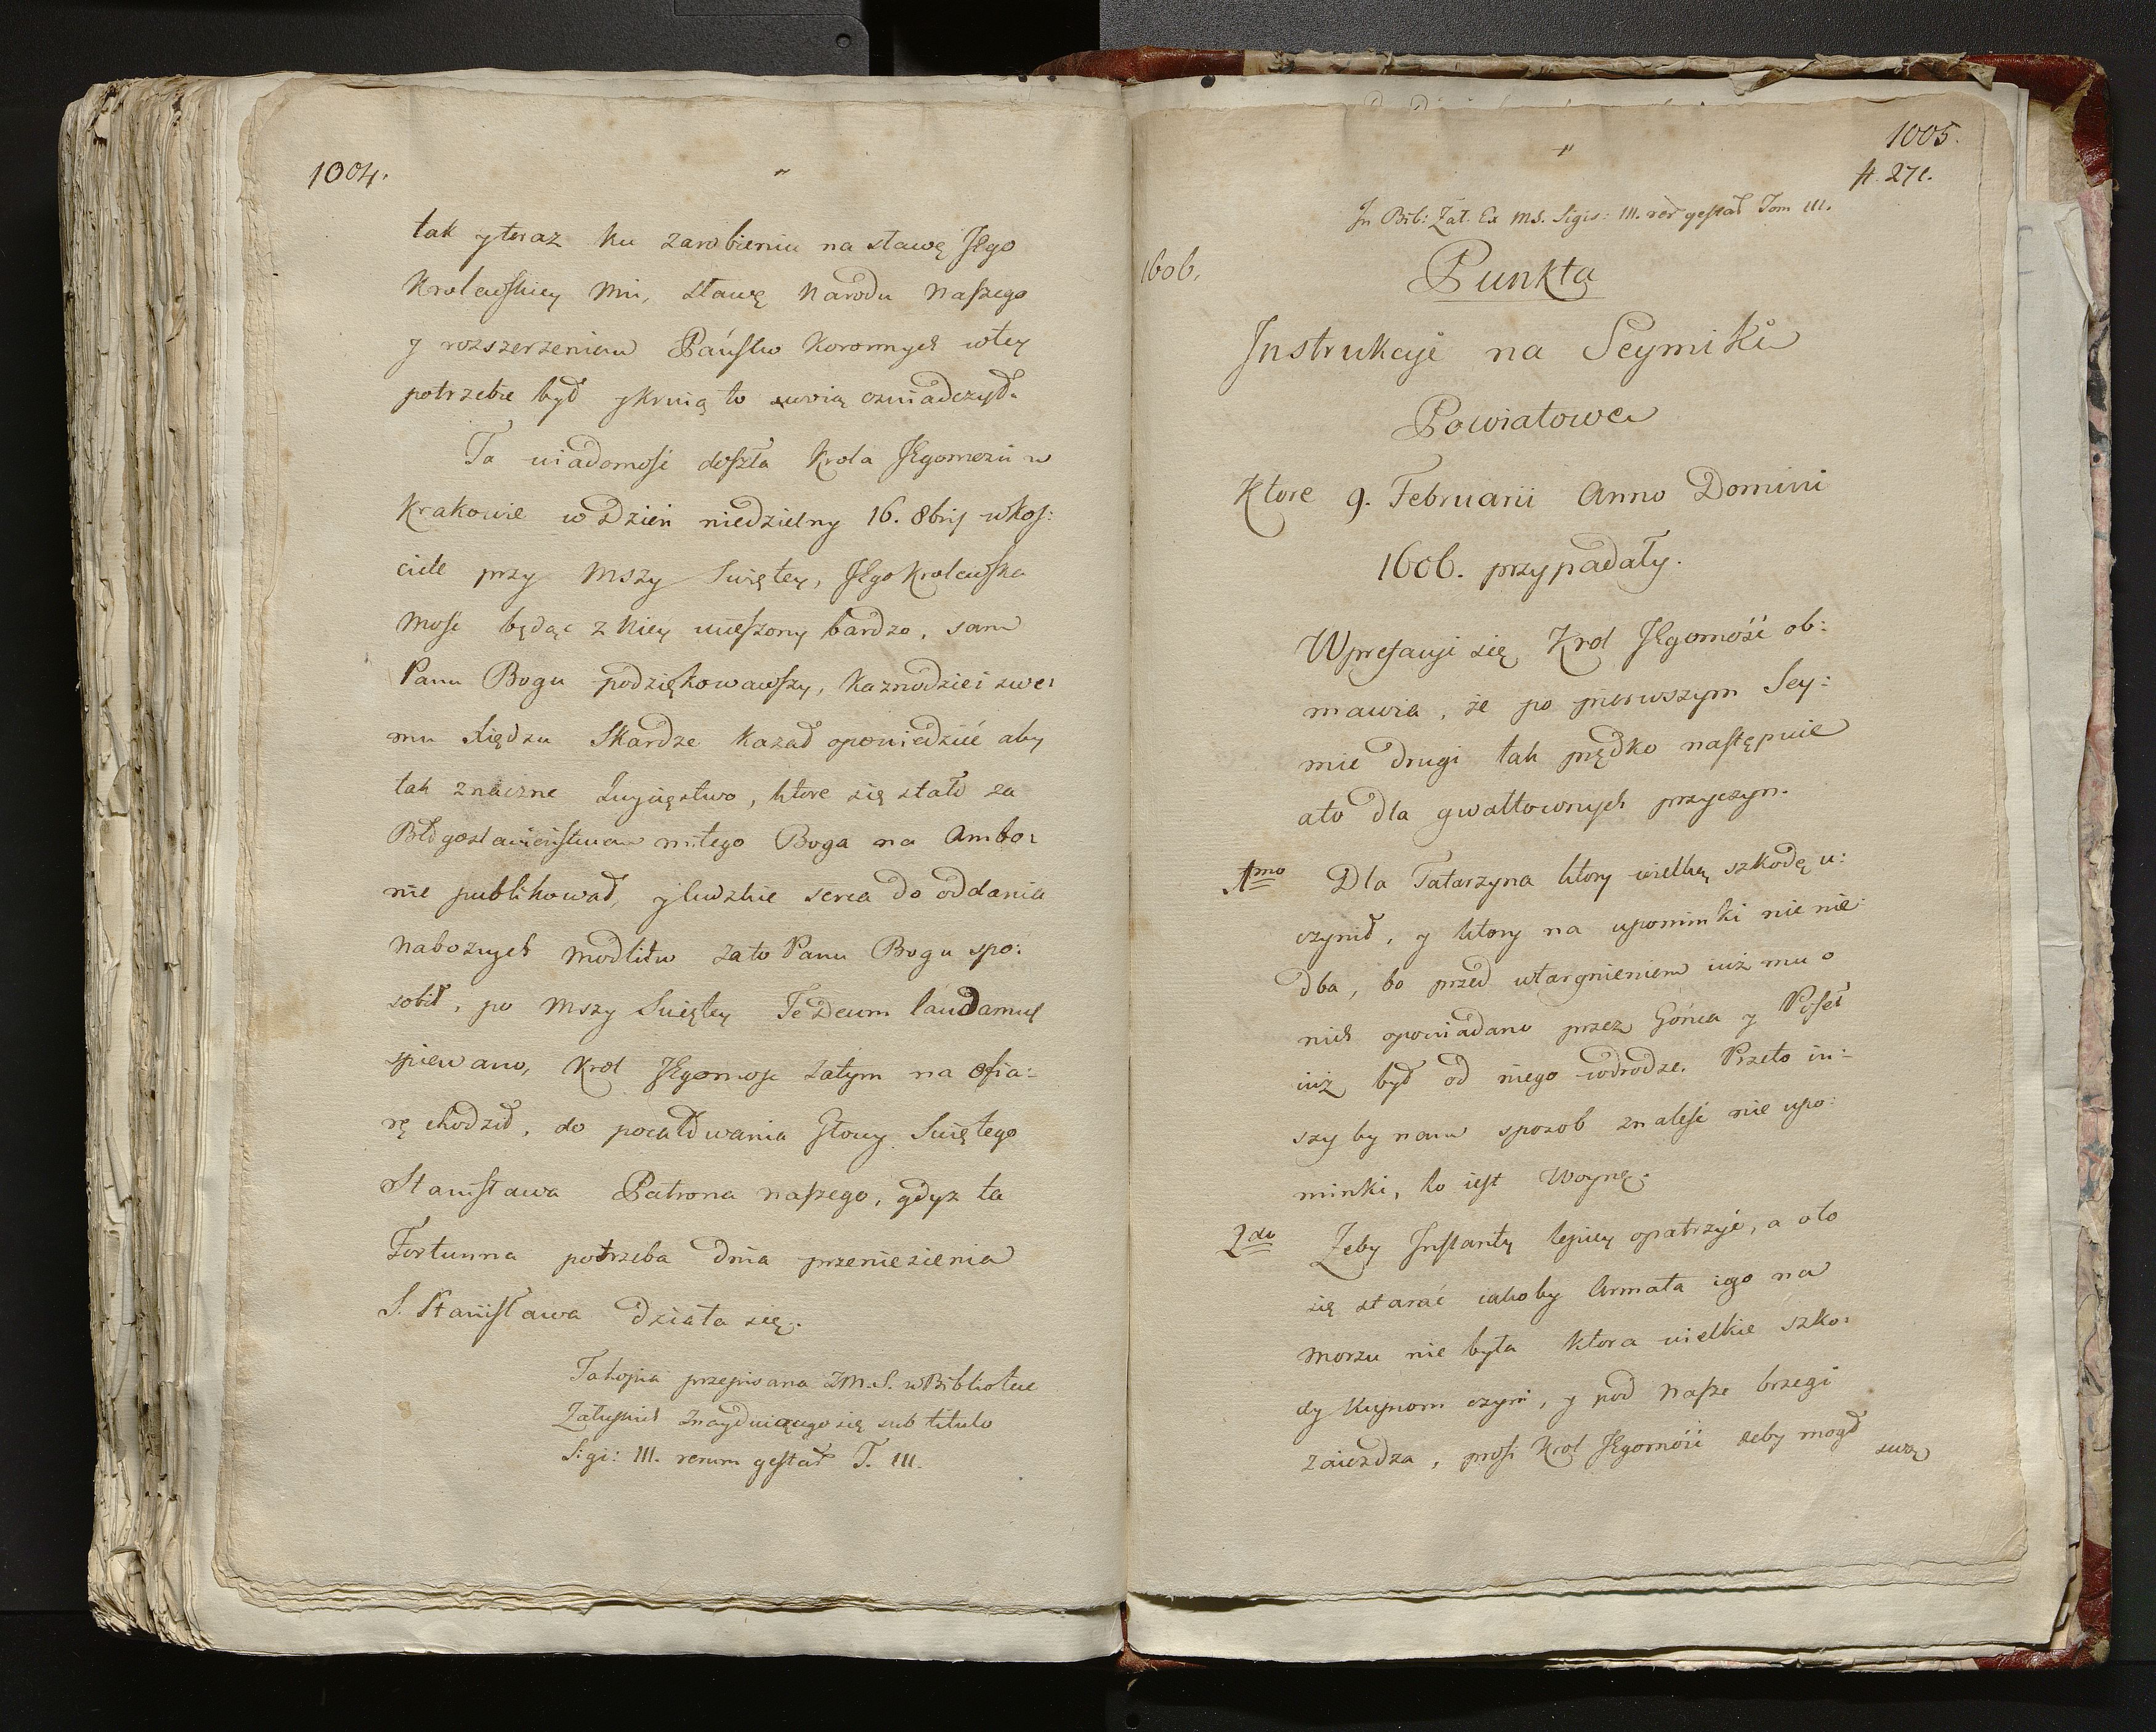 1004.
tak y teraz ku zarobieniu na sławę JEgo
Krolewskiey Mci, sławę Narodu Naszego
y rozszerzeniem Państw Koronnych w tey
potrzebie był y krwią to swoią oswiadczył.
Ta wiadomość doszła Krola JEgomości w
Krakowie w Dzień niedzielny 16. 8bris w Kos:
ciele przy Mszy Swiętey, JEgo Krolewska
Mość będąc z niey ucieszony bardzo, sam
Panu Bogu podziękowawszy, Kaznodziei swe:
mu Xiędzu Skardze kazał opowiedzieć aby
tak znaczne Zwycięstwo, ktore się stało za
Błogosławieństwem miłego Boga na Ambo:
nie publikował, y ludzkie serca do oddania
Nabożnych Modlitw za to Panu Bogu spo:
sobił, po Mszy Swiętey Te Deum laudamus
spiewano, Krol JEgomość zatym na ofia:
rę chodził, do pocałowania Głowy Swiętego
Stanisława Patrona naszego, gdyż ta
Fortunna potrzeba dnia przeniesienia
S. Stanisława działa się.
Ta kopia przepisana z M.S. w Bibliotece
Załuskich znayduiącego się sub titulo
Sigi: III. rerum gestar T. III.
1005.
A. 271.
In Bib: Zał. Ex MS. Sigis: III. rer gestar Tom III.
1606.
Punkta
Instrukcyi na Seymiki
Powiatowe
Ktore 9. Februarii Anno Domini
1606. przypadały.
W prefacyi się Krol JEgomość ob:
mawia, że po pierwszym Sey:
mie drugi tak prędko następuie
a to dla gwałtownych przyczyn.
1mo Dla Tatarzyna ktory wielką szkodę u:
czynił, y ktory na upominki nic nie
dba, bo przed wtargnieniem iuż mu o
nich opowiadano przez Gońca y Poseł
iuż był od niego w drodze. Przeto in:
szy by nam sposob znaleść nie upo:
minki, to iest Woynę.
2do Żeby Inflanty lepiey opatrzyć, a o to
się starać iakoby Armata iego na
morzu nie była ktora wielkie szko:
dy Kupcom czyni, y pod Nasze brzegi
zaiezdza, prosi Krol JEgomość żeby mogł
swą